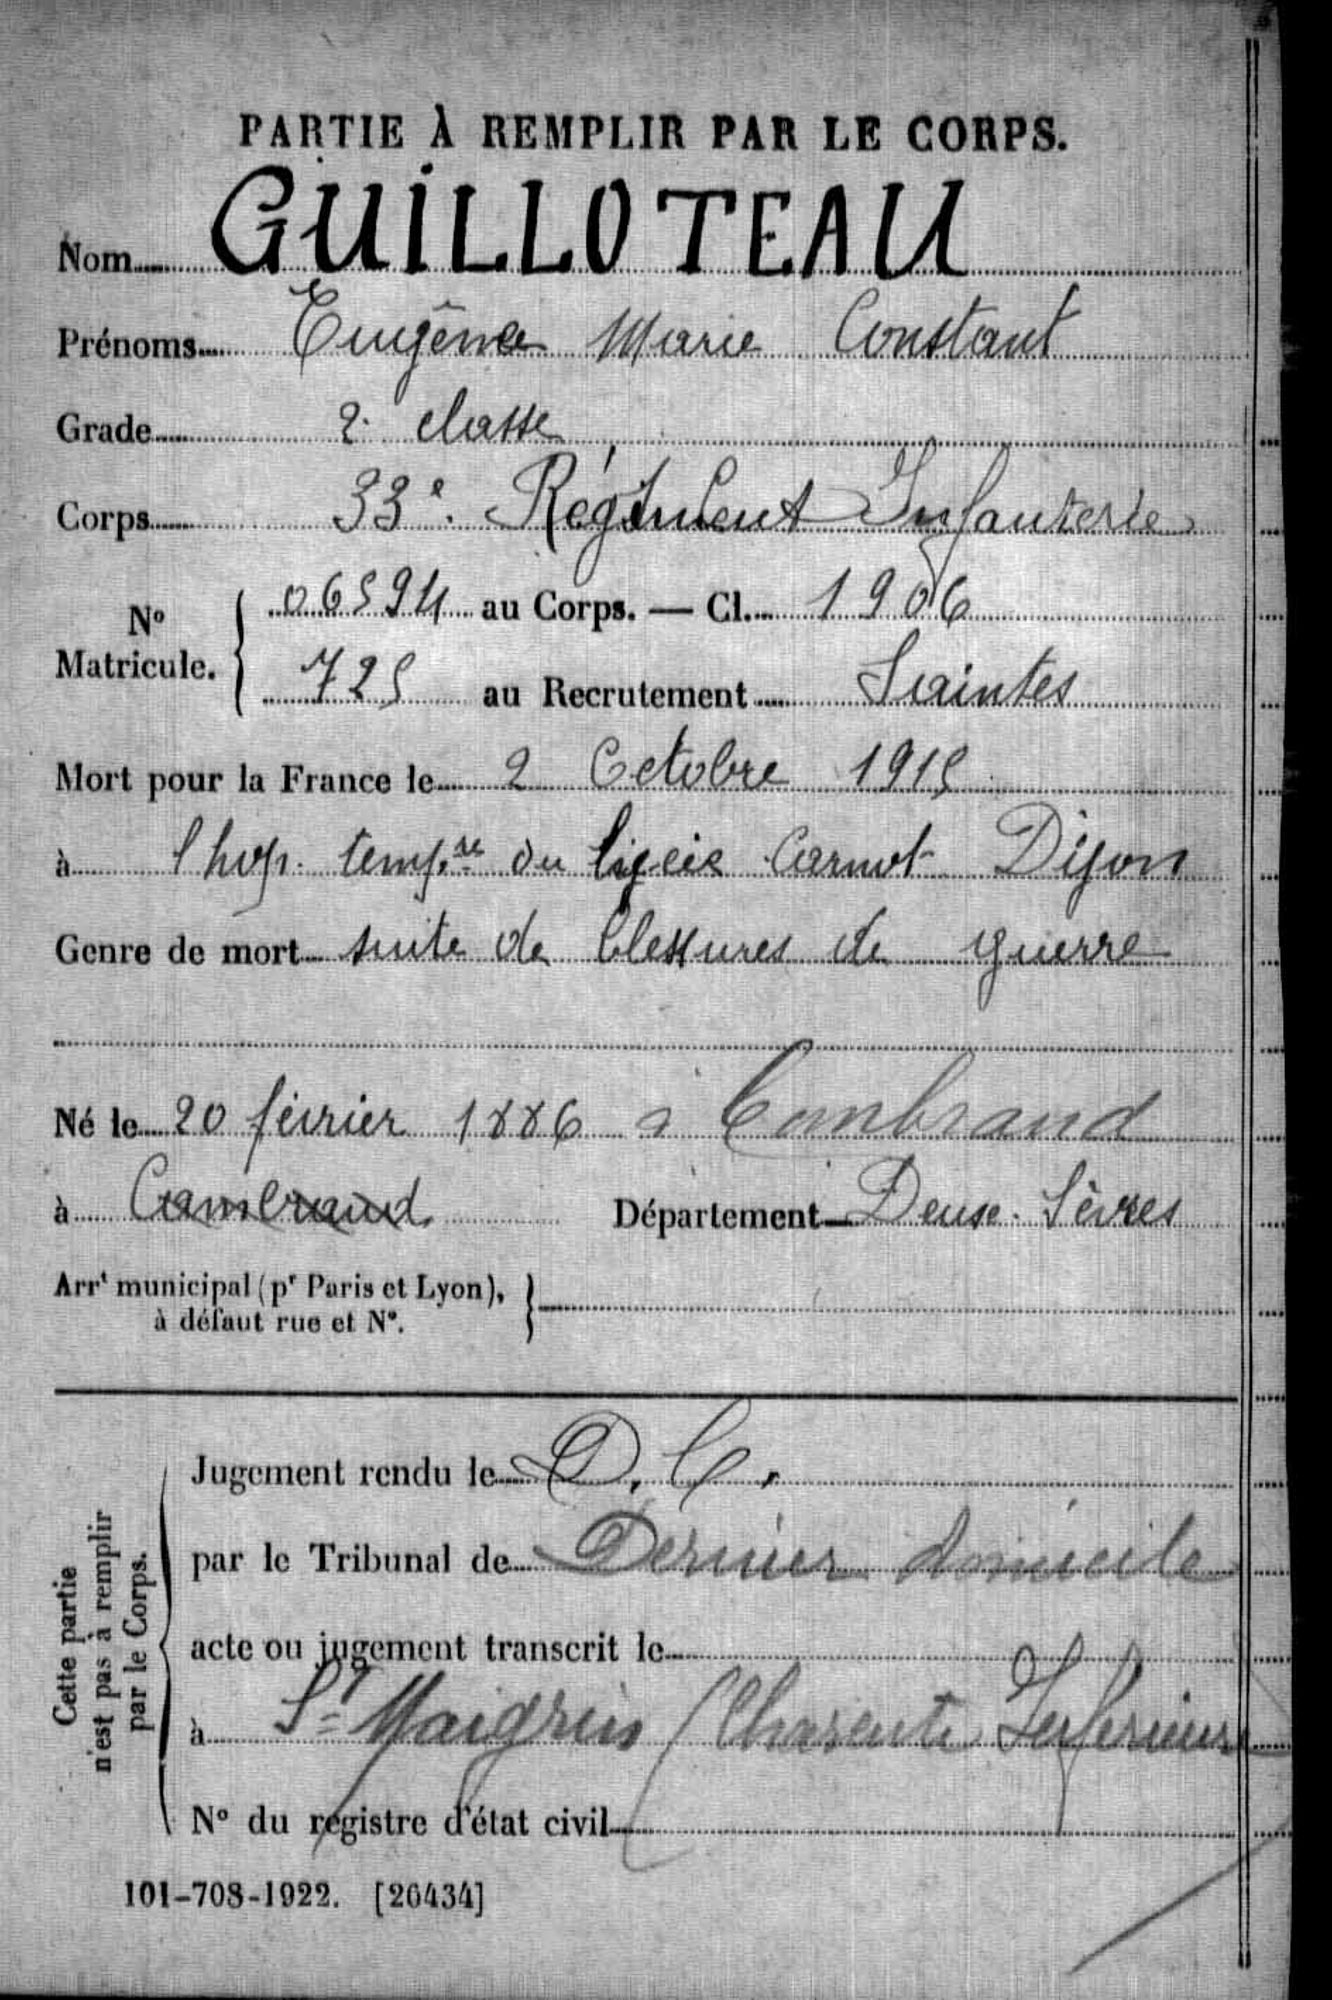 PARTIE À REMPLIR PAR LE CORPS.
Nom GUILLOTEAU
Prénoms Eugène Marie Constant
Grade 2e classe
Corps 33e Régiment Infanterie
No Matricule. 06594 au Corps. — Cl. 1906
725 au Recrutement Saintes
Mort pour la France le 2 Octobre 1915
à l'hop. tempre du lycée Carnot Dijon
Genre de mort suite de blessures de guerre
Né le 20 février 1886 à Combrand
à Cambraud Département Deux-Sèvres
Arrt municipal (pr Paris et Lyon),
à défaut rue et No.
Cette partie
n'est pas à remplir
par le Corps.
Jugement rendu le D. C.
par le Tribunal de Dernier domicile
acte ou jugement transcrit le
à St Maigrin (Charente Inferieure
No du registre d'état civil
101-708-1922. [26434]